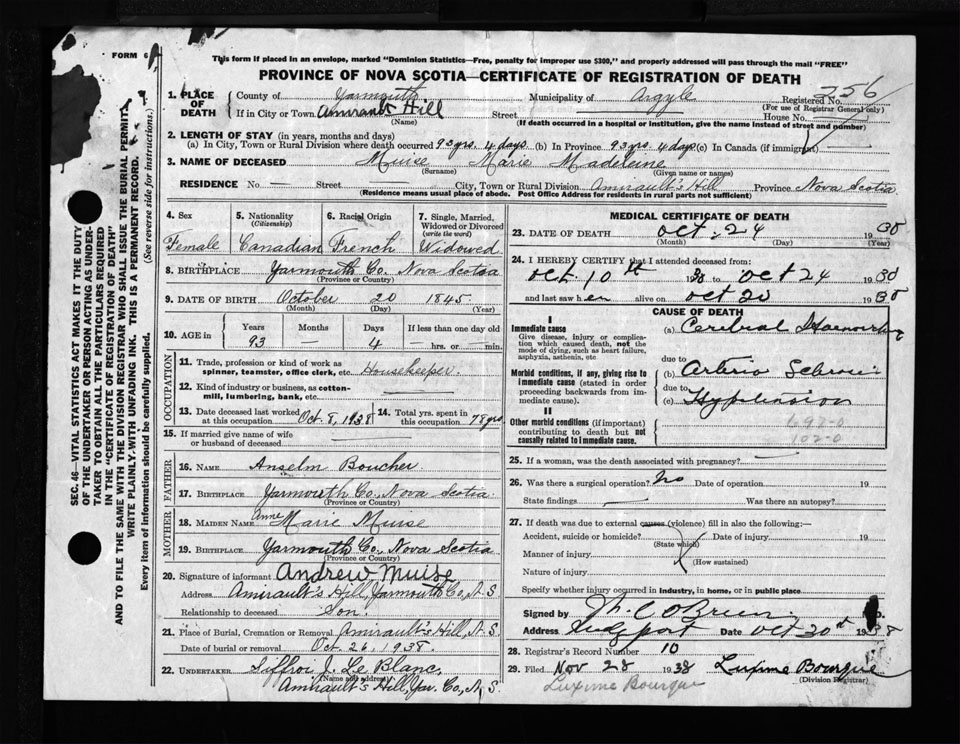 FORM 6
This form if placed in an envelope, marked "Dominion Statistics—Free, penalty for improper use $300," and properly addressed will pass through the mail "FREE"
PROVINCE OF NOVA SCOTIA—CERTIFICATE OF REGISTRATION OF DEATH
SEC. 46—VITAL STATISTICS ACT MAKES IT THE DUTY
OF THE UNDERTAKER OR PERSON ACTING AS UNDER-
TAKER TO OBTAIN ALL THE PARTICULARS REQUIRED
IN THE "CERTIFICATE OF REGISTRATION OF DEATH"
AND TO FILE THE SAME WITH THE DIVISION REGISTRAR WHO SHALL ISSUE THE BURIAL PERMIT.
WRITE PLAINLY WITH UNFADING INK. THIS IS A PERMANENT RECORD.
Every item of information should be carefully supplied. (See reverse side for instructions.)
1. PLACE OF DEATH County of Yarmouth Municipality of Argyle Registered No. 256
(For use of Registrar General only)
If in City or Town Amirault Hill Street House No.
(Name) (If death occurred in a hospital or institution, give the name instead of street and number)
2. LENGTH OF STAY (in years, months and days)
(a) In City, Town or Rural Division where death occurred 93 yrs. 4 days (b) In Province 93 yrs. 4 days (c) In Canada (if immigrant) —
3. NAME OF DECEASED Muise Marie Madeleine
(Surname) (Given name or names)
RESIDENCE No. — Street City, Town or Rural Division Amirault's Hill Province Nova Scotia
(Residence means usual place of abode. Post Office Address for residents in rural parts not sufficient)
4. Sex 5. Nationality (Citizenship) 6. Racial Origin 7. Single, Married, Widowed or Divorced (write the word)
Female Canadian French Widowed
8. BIRTHPLACE Yarmouth Co. Nova Scotia
(Province or Country)
9. DATE OF BIRTH October 20 1845
(Month) (Day) (Year)
10. AGE in Years Months Days If less than one day old
93 — 4 — hrs. or — min.
OCCUPATION
11. Trade, profession or kind of work as spinner, teamster, office clerk, etc. Housekeeper.
12. Kind of industry or business, as cotton-mill, lumbering, bank, etc. —
13. Date deceased last worked at this occupation Oct. 8, 1938 14. Total yrs. spent in this occupation 78 yrs
15. If married give name of wife or husband of deceased —
FATHER
16. NAME Anselm Boucher
17. BIRTHPLACE Yarmouth Co. Nova Scotia
(Province or Country)
MOTHER
18. MAIDEN NAME Anne Marie Muise
19. BIRTHPLACE Yarmouth Co. Nova Scotia
(Province or Country)
20. Signature of informant Andrew Muise
Address Amirault's Hill, Yarmouth Co, N.S.
Relationship to deceased Son.
21. Place of Burial, Cremation or Removal Amirault's Hill, N.S.
Date of burial or removal Oct. 26, 1938.
22. UNDERTAKER Siffroi J. Le Blanc,
(Name and address)
Amirault's Hill, Yar. Co., N.S.
MEDICAL CERTIFICATE OF DEATH
23. DATE OF DEATH Oct. 24 1938
(Month) (Day) (Year)
24. I HEREBY CERTIFY that I attended deceased from:
Oct. 10th 1938 to Oct 24 1938
and last saw her alive on Oct 20 1938
CAUSE OF DEATH
I
Immediate cause (a) Cerebral Haemorrhag
Give disease, injury or complica-
tion which caused death, not the
mode of dying, such as heart failure,
asphyxia, asthenia, etc.
due to
Morbid conditions, if any, giving rise to
immediate cause (stated in order
proceeding backwards from im-
mediate cause).
(b) Arterio
due to
(c) Hypertension
II
Other morbid conditions (if important)
contributing to death but not
causally related to immediate cause.
102-0
25. If a woman, was the death associated with pregnancy? —
26. Was there a surgical operation? No Date of operation 19
State findings — Was there an autopsy?
27. If death was due to external causes (violence) fill in also the following:—
Accident, suicide or homicide? Date of injury 19
(State which)
Manner of injury
(How sustained)
Nature of injury
Specify whether injury occurred in industry, in home, or in public place
Signed by O'Brien
Address Date Oct 30th 1938
28. Registrar's Record Number 10
29. Filed Nov 28 1938 Luxime Bourque
(Division Registrar)
Luxime Bourque